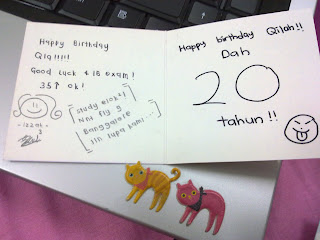 Happy Birthday
Qiq!!!!!
Good luck 4 IB exam!
35↑ ok!
[study elok2,
Nnt fly g
Banggalore
Jln lupa kami...]
- izzati -
Happy birthday Qilah!!
Dah
20
tahun!!